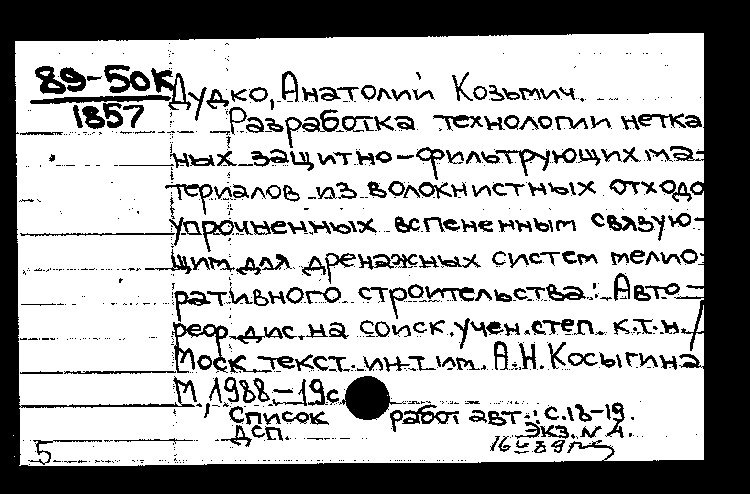 89-50К
1857
Дудко, Анатолий Козьмич.
Разработка технологии нетка
ных защитно-фильтрующих ма-
териалов из волокнистных отходо
упрочненных вспененным связую-
щим для дренажных систем мелио-
ративного строительства: Авто-
реф. дис. на соиск. учен. степ. к.т.н. /
Моск. текст. ин-т им. А.Н. Косыгина
М, 1988.-19с
Список работ авт.: с.18-19.
ДСП. Экз. N А.
5